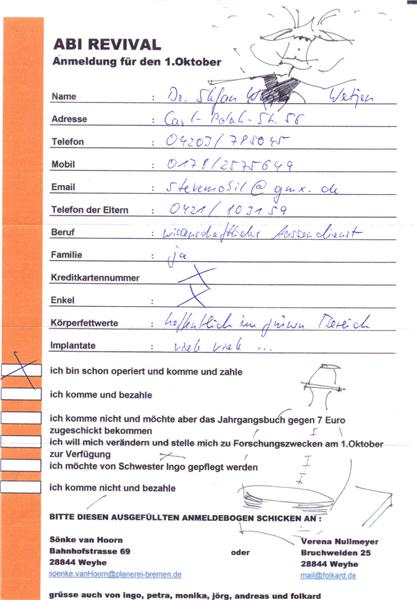 ABI REVIVAL
Anmeldung für den 1.Oktober
Name : Dr. Stefan Wetjen
Adresse : Carl-
Telefon : 04203/785045
Mobil : 0178/2575649
Email : stevemobil@gmx.de
Telefon der Eltern : 0421/103159
Beruf : wissenschaftlicher Aussendienst
Familie : ja
Kreditkartennummer :
Enkel :
Körperfettwerte : hoffentlich im grünen Bereich
Implantate : viele viele ...
ich bin schon operiert und komme und zahle
ich komme und bezahle
ich komme nicht und möchte aber das Jahrgangsbuch gegen 7 Euro
zugeschickt bekommen
ich will mich verändern und stelle mich zu Forschungszwecken am 1.Oktober
zur Verfügung
ich möchte von Schwester Ingo gepflegt werden
ich komme nicht und bezahle
BITTE DIESEN AUSGEFÜLLTEN ANMELDEBOGEN SCHICKEN AN :
Sönke van Hoorn Verena Nullmeyer
Bahnhofstrasse 69 oder Bruchweiden 25
28844 Weyhe 28844 Weyhe
soenke.vanHoorn@planerei-bremen.de mail@folkard.de
grüsse auch von ingo, petra, monika, jörg, andreas und folkard